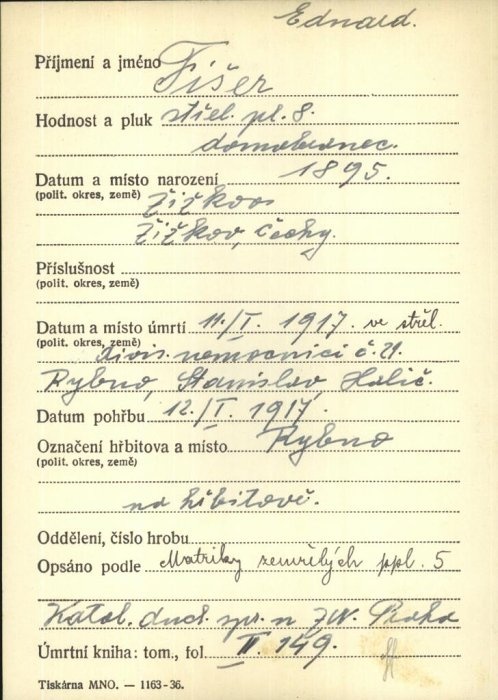 Eduard.
Příjmení a jméno Fišer
Hodnost a pluk střel. pl. 8.
domobranec.
Datum a místo narození 1895.
(polit. okres, země) Žižkov
Žižkov, Čechy.
Příslušnost
(polit. okres, země)
Datum a místo úmrtí 11./I. 1917. ve střel.
(polit. okres, země) divis. nemocnici č. 21.
Rybno, Stanislav, Halič.
Datum pohřbu 12./I. 1917.
Označení hřbitova a místo Rybno
(polit. okres, země)
na hřbitově.
Oddělení, číslo hrobu
Opsáno podle Matriky zemřelých ppl. 5
Katol. duch. spr. n ZVV. Praha
Úmrtní kniha: tom., fol. II. 149.
Tiskárna MNO. — 1163-36.